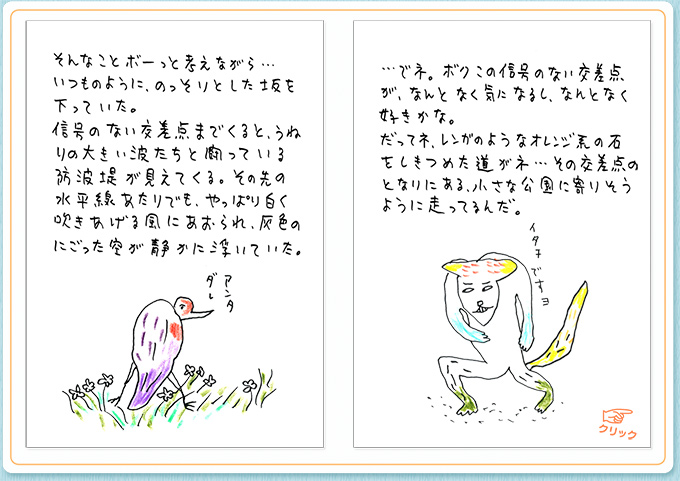 そんなことボーっと考えながら…
いつものように、のっそりとした坂を
下っていた。
信号のない交差点までくると、うね
りの大きい波たちと闘っている
防波堤が見えてくる。その先の
水平線あたりでも、やっぱり白く
吹きあげる風にあおられ、灰色の
にごった空が静かに浮いていた。
アンタ
ダレ
…でネ。ボクこの信号のない交差点
が、なんとなく気になるし、なんとなく
好きかな。
だってネ、レンガのようなオレンジ系の石
をしきつめた道がネ…その交差点の
となりにある、小さな公園に寄りそう
ように走ってるんだ。
イタチですョ
クリック